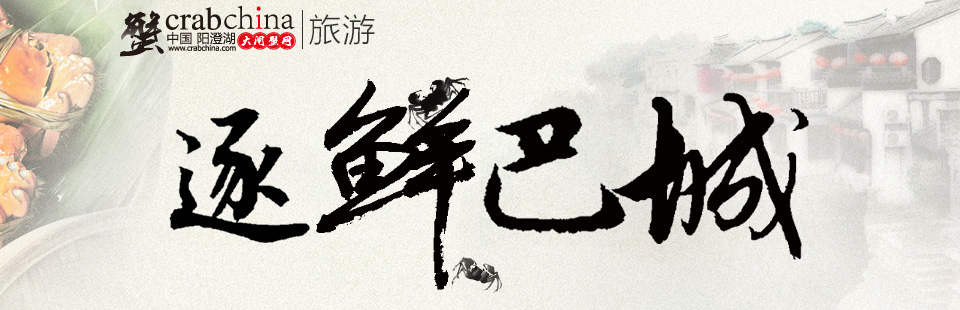 蟹 crabchina 旅游
中国 阳澄湖 大闸蟹网
www.crabchina.com
逐鲜巴城